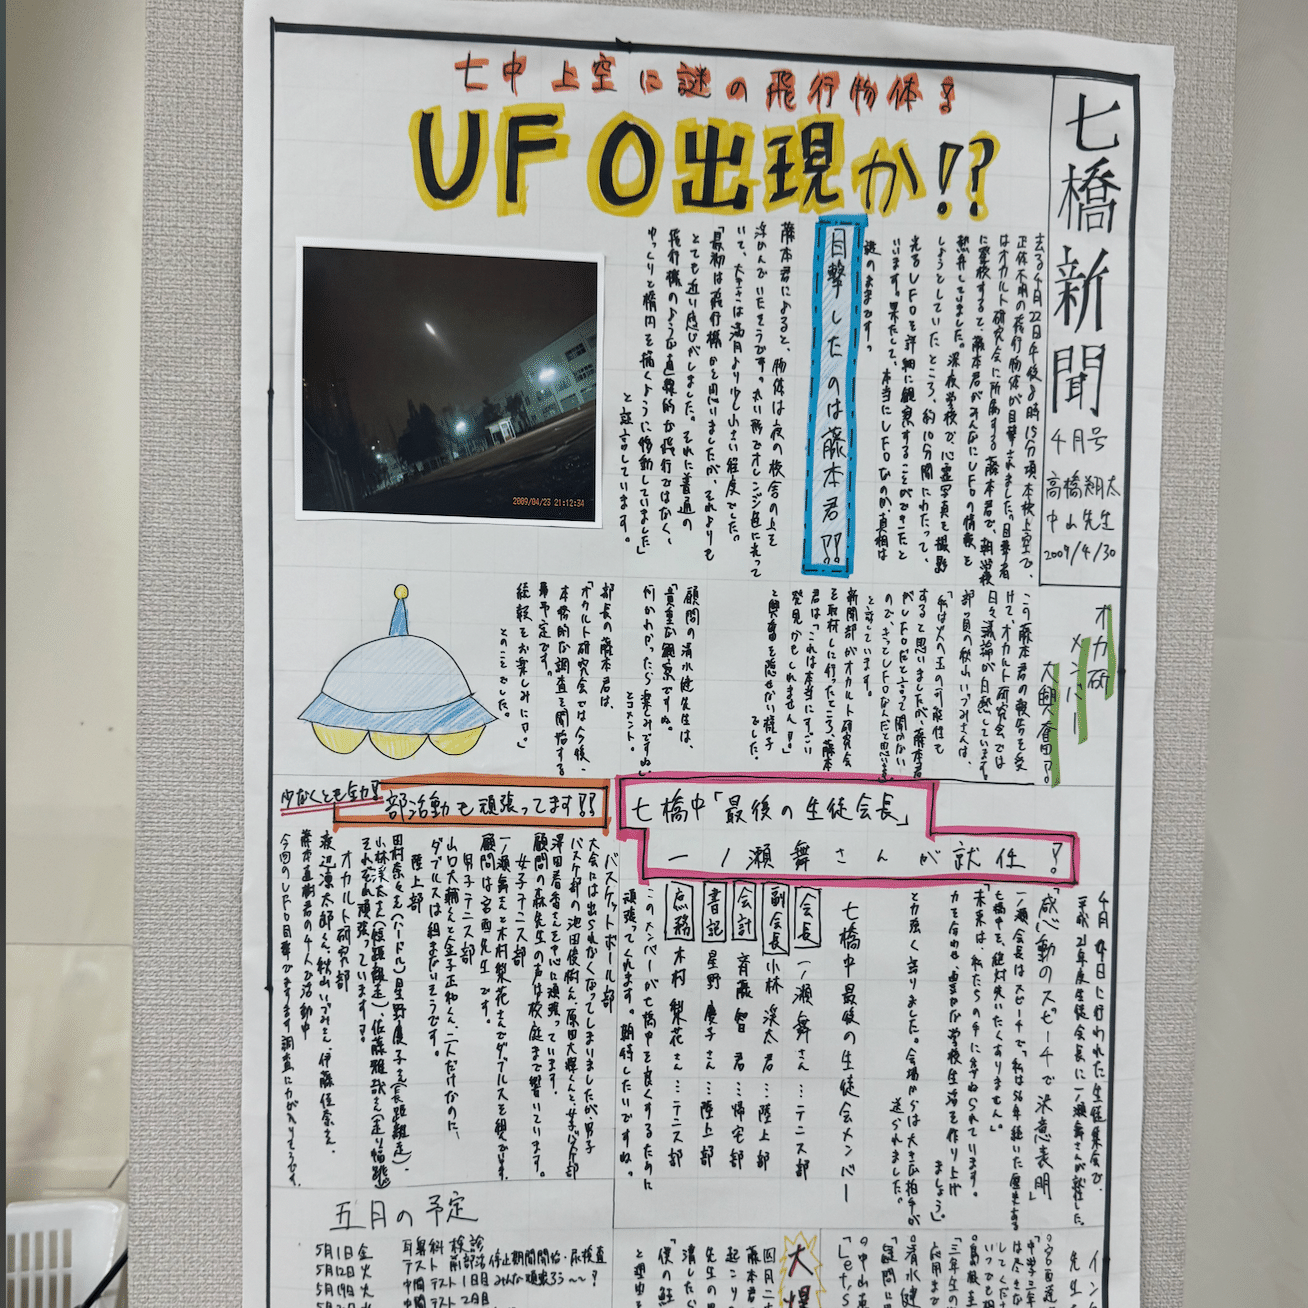 七橋新聞
4月号
高橋翔太
中山先生
2009/4/30
七中上空に謎の飛行物体!
UFO出現か!?
去る4月22日午後8時15分頃、本校上空で、
正体不明の飛行物体が目撃されました。目撃者
はオカルト研究会に所属する藤本君で、朝学校
に登校すると、藤本君がみんなにUFOの情報を
熱弁していました。深夜学校で心霊写真を撮影
しようとしていたところ、約10分間にわたって、
光るUFOを詳細に観察することができたと
います。果たして、本当にUFOなのか、真相は
謎のままです。
目撃したのは藤本君!?
藤本君によると、物体は夜の校舎の上を
浮かんでいたそうです。丸い形でオレンジ色に光って
いて、大きさは満月より少し小さい程度でした。
「最初は飛行機かと思いましたが、それよりも
とても近い感じがしました。それに普通の
飛行機のような直線的な飛行ではなく、
ゆっくりと楕円を描くように移動していました」
と証言しています。
2009/04/23 21:12:34
オカ研
メンバー
大興奮!?
この藤本君の報告を受
けて、オカルト研究会では
日々議論が白熱しています。
部員の秋山いづみさんは、
「私は火の玉の可能性も
すると思いましたが、藤本君
がUFOだと言って聞かない
ので、きっとUFOなんだと思います」
と話しています。
新聞部がオカルト研究会
を取材しに行ったところ、藤本
君は「これは本当にすごい
発見かもしれません!」
と興奮を隠せない様子
でした。
顧問の清水健先生は、
「貴重な観察ですね。
何かわかったら楽しみですね」
とコメント。
部長の藤本君は、
「オカルト研究会では今後、
本格的な調査を開始する
予定です。
続報をお楽しみに!」
とのことでした。
七橋中「最後の生徒会長」
一ノ瀬舞さんが就任!
4月14日に行われた生徒集会で、
平成21年度生徒会長に一ノ瀬舞さんが就任した。
「感動のスピーチで決意表明」
一ノ瀬会長はスピーチで「私は56年続いた歴史ある
七橋中を、絶対失いたくありません。」
「未来は、私たちの手に委ねられています。
力を合わせ、豊かな学校生活を作り上げ
ましょう。」
と力強く語りました。会場からは大きな拍手が
送られました。
七橋中最後の生徒会メンバー
会長 一ノ瀬舞さん…テニス部
副会長 小林渓太君…陸上部
会計 斉藤智君…帰宅部
書記 星野慶子さん…陸上部
庶務 木村梨花さん…テニス部
このメンバーが七橋中を良くするために
頑張ってくれます。期待したいですね。
少なくとも全力!
部活動も頑張ってます!!
バスケットボール部
大会には出られなくなってしまいましたが、男子
バスケ部の池田俊樹くん、原田大輝くんと、女子バスケ部
澤田若香さんを中心に頑張っています。
顧問の森先生の声は校庭まで響いています。
女子テニス部
一ノ瀬舞さんと木村梨花さんでダブルスを組んでいます。
顧問は宮西先生です。
男子テニス部
山口大輔くんと金子正和くん、二人だけなのに、
ダブルスは組まないそうです。
陸上部
田村奈々さん(ハードル)、星野慶子さん(長距離走)、
小林渓太さん(短距離走)、佐藤雅哉さん(走り幅跳)
それぞれ頑張っています!?
オカルト研究部
渡辺凛太郎くん、秋山いづみさん、伊藤佳奈さん、
藤本直樹君の4人で活動中
今回のUFO目撃でますます調査に力が入りそうです。
五月の予定
5月1日金 耳鼻科検診
5月12日火 テスト前部活停止期間開始・尿検査
5月19日火 中間テスト1日目 みんな頑張ろう〜!
テスト2日目
大爆